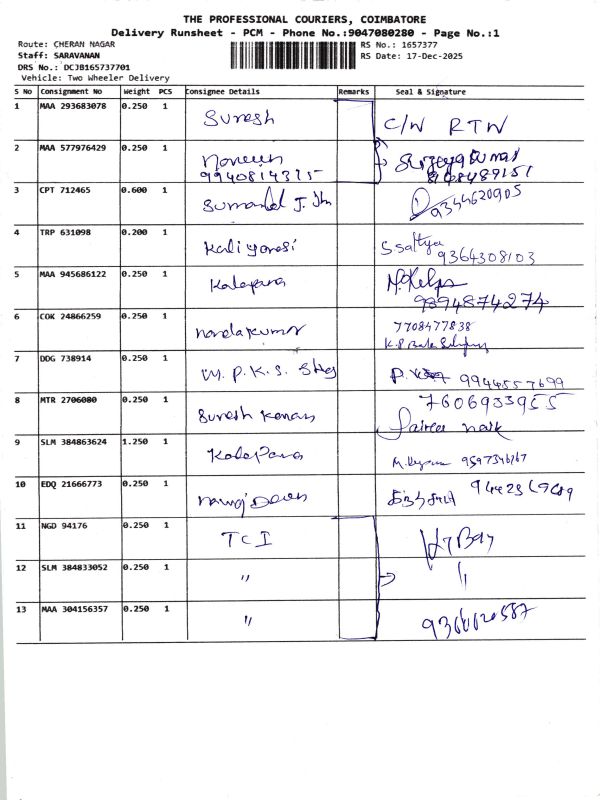 THE PROFESSIONAL COURIERS, COIMBATORE
Delivery Runsheet - PCM - Phone No.:9047080280 - Page No.:1
Route: CHERAN NAGAR RS No.: 1657377
Staff: SARAVANAN RS Date: 17-Dec-2025
DRS No.: DCJB165737701
Vehicle: Two Wheeler Delivery
S No Consignment No Weight PCS Consignee Details Remarks Seal & Signature
1 MAA 293683078 0.250 1 Suresh C/W RTW
2 MAA 577976429 0.250 1
9940814315
3 CPT 712465 0.600 1 9344620905
4 TRP 631098 0.200 1 Kaliyarasi S Sathya 9364308103
5 MAA 945686122 0.250 1 Kalapana
9894874274
6 COK 24866259 0.250 1 nandakumar 7708477838
7 DDG 738914 0.250 1 M. P. K. S. 9944557699
8 MTR 2706080 0.250 1 Suresh Kanan 7606933955
9 SLM 384863624 1.250 1 Kalapana 9597346167
10 EDQ 21666773 0.250 1
11 NGD 94176 0.250 1 TCI
12 SLM 384833052 0.250 1 " "
13 MAA 304156357 0.250 1 "